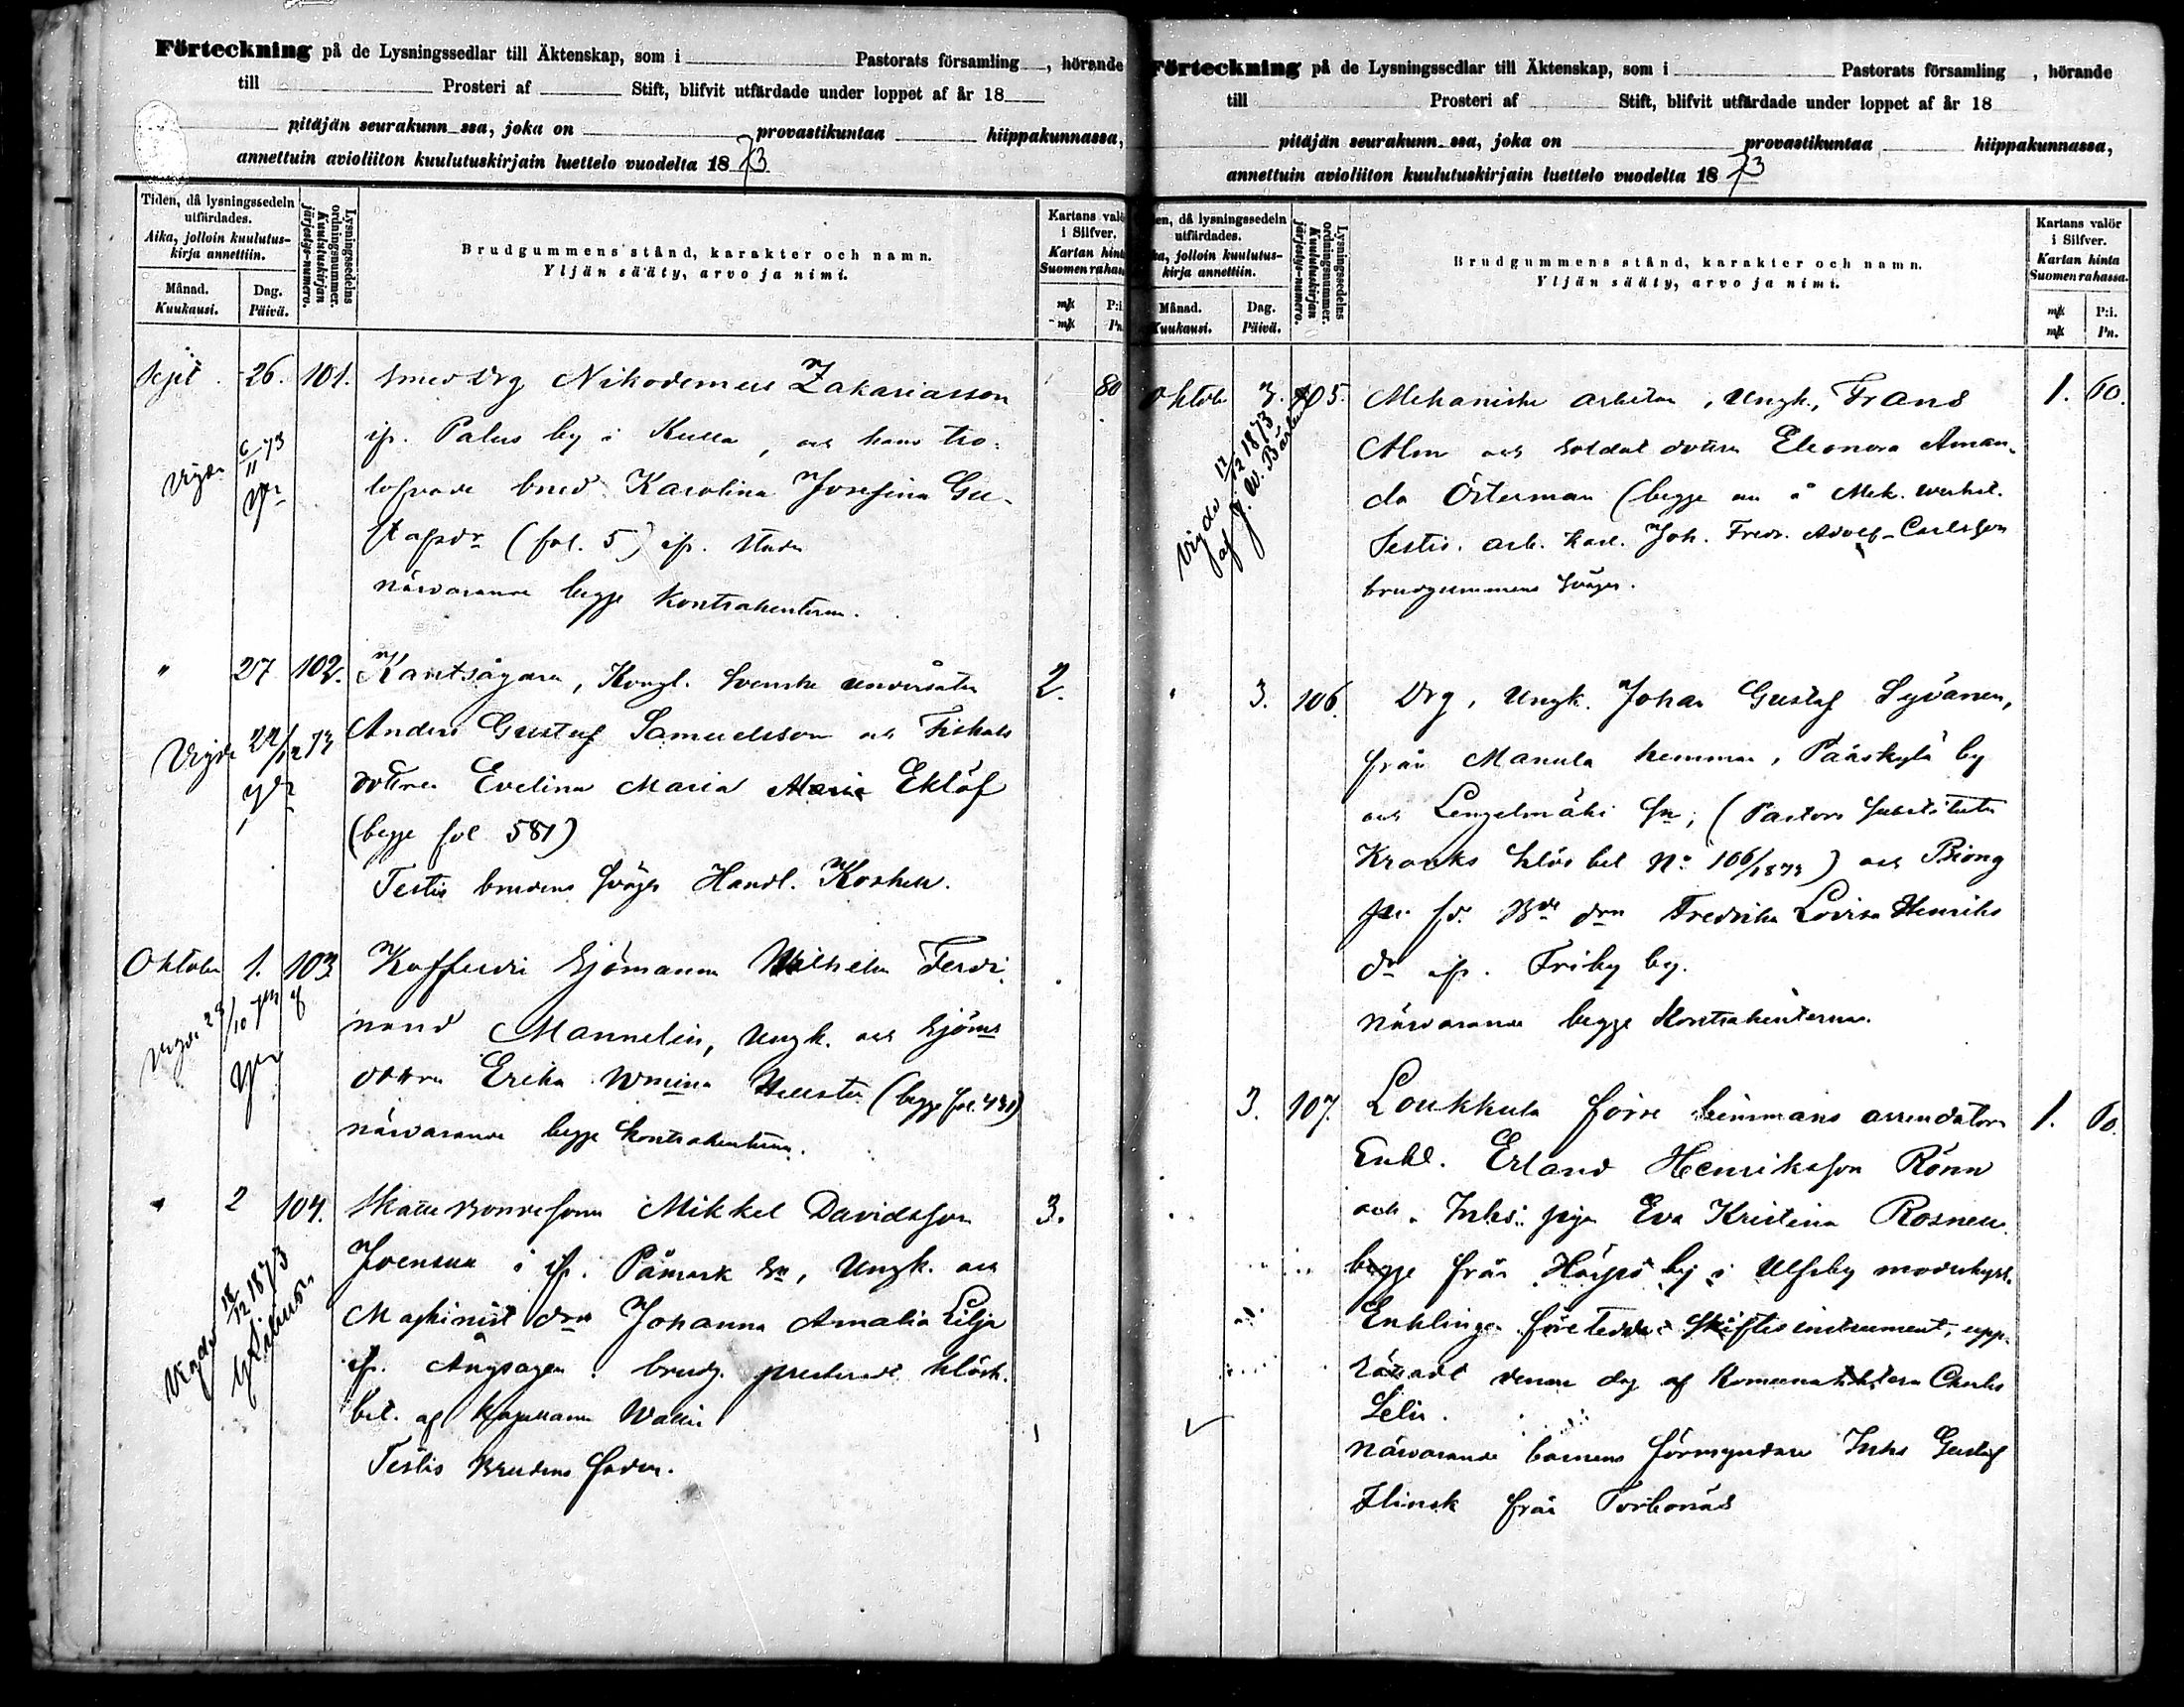 Förteckning på de Lysningssedlar till Äktenskap, som i Pastorats församling , hörande
till Prosteri af Stift, blifvit utfärdade under loppet af år 18
pitäjän seurakunn ssa, joka on provastikuntaa hiippakunnassa,
annettuin avioliiton kuulutuskirjain luettelo vuodelta 1873
Tiden, då lysningssedeln utfärdades.
Aika, jolloin kuulutus-
kirja annettiin.
Månad. Kuukausi.
Dag. Päivä.
Lysningssedelns ordningsnummer.
Kuulutuskirjan järjestys-numero.
Brudgummens stånd, karakter och namn.
Yljän sääty, arvo ja nimi.
Kartans valör
i Silfver.
Kartan hinta
Suomen rahassa
Sept. 26. 101. Smed Drg Nikodemus Zakariasson 80
Vigde 6/11 73
if. Palus by i Kulla, och hans tro-
lofvade brud Karolina Josefina Gu-
stafsdr (fol. 5) if. staden
närvarande begge Kontrahenterna.
" 27 102. Kantsågare, Kongl. Svenske undersåten 2.
Vigde
Anders Gustaf Samuelsson och Fiskals
dottren Evelina Maria Eklöf
(begge fol 581)
Testis brudens svåger Handl.
Oktober 1. 103 Kofferdi Sjömannen Wilhelm Ferdi-
nand Mannelin, Ungk. och Sjöms
dottren Erika Wmina (begge fol. 431)
närvarande begge kontrahenterna.
" 2 104. Skatte Bondesonen Mikkel Davidsson 3.
Vigde 18/12 1873
i if. Påmark Sn, Ungk. och
Maskinist drn Johanna Amalia Lilja
if. Ängsagen. brudg. presterade
bet. af Kapellanen Wallin
Testis Brudens fader.
Förteckning på de Lysningssedlar till Äktenskap, som i Pastorats församling , hörande
till Prosteri af Stift, blifvit utfärdade under loppet af år 18
pitäjän seurakunn ssa, joka on provastikuntaa hiippakunnassa,
annettuin avioliiton kuulutuskirjain luettelo vuodelta 1873
en, då lysningssedeln
utfärdades.
ka, jolloin kuulutus-
kirja annettiin.
Månad. Kuukausi.
Dag. Päivä.
Lysningssedelns ordningsnummer.
Kuulutuskirjan järjestys-numero.
Brudgummens stånd, karakter och namn.
Yljän sääty, arvo ja nimi.
Kartans valör
i Silfver.
Kartan hinta
Suomen rahassa.
P:i. Pn.
Oktob 3. 105. Mekaniske arbetaren, Ungk., Frans 1. 60.
Vigde 17/12 1873
af J. W.
Alm och Soldat dottren Eleonora Aman-
da Österman (begge å Mek. werkst.
Testis. arb. Karl. Joh. Fredr. Adolf Carlsson
brudgummens svåger.
" 3. 106. Drg, Ungk. Johan Gustaf Syvänen,
från Manula hemman, Pääskylä by
och Lengelmäki Sn; (Pastors Substituten
Kranks bet No 106/1873) och
Fredrika Lovisa Henriks
dr if. Friby by.
närvarande begge Kontrahenterna.
3. 107. Loukkula förre hemmans arrendatorn 1. 60.
Enkl. Erland Henriksson Rönn
och Inhs: pigan Eva Kristina Rosnell
begge från Harjis by i Ulfsby moderkyrk.
Enklingen företedde Skiftesinstrument, upp-
rättadt denna dag af Charles
Selin.
närvarande barnens förmyndare Inhs Gustaf
Flinck från Torbonäs